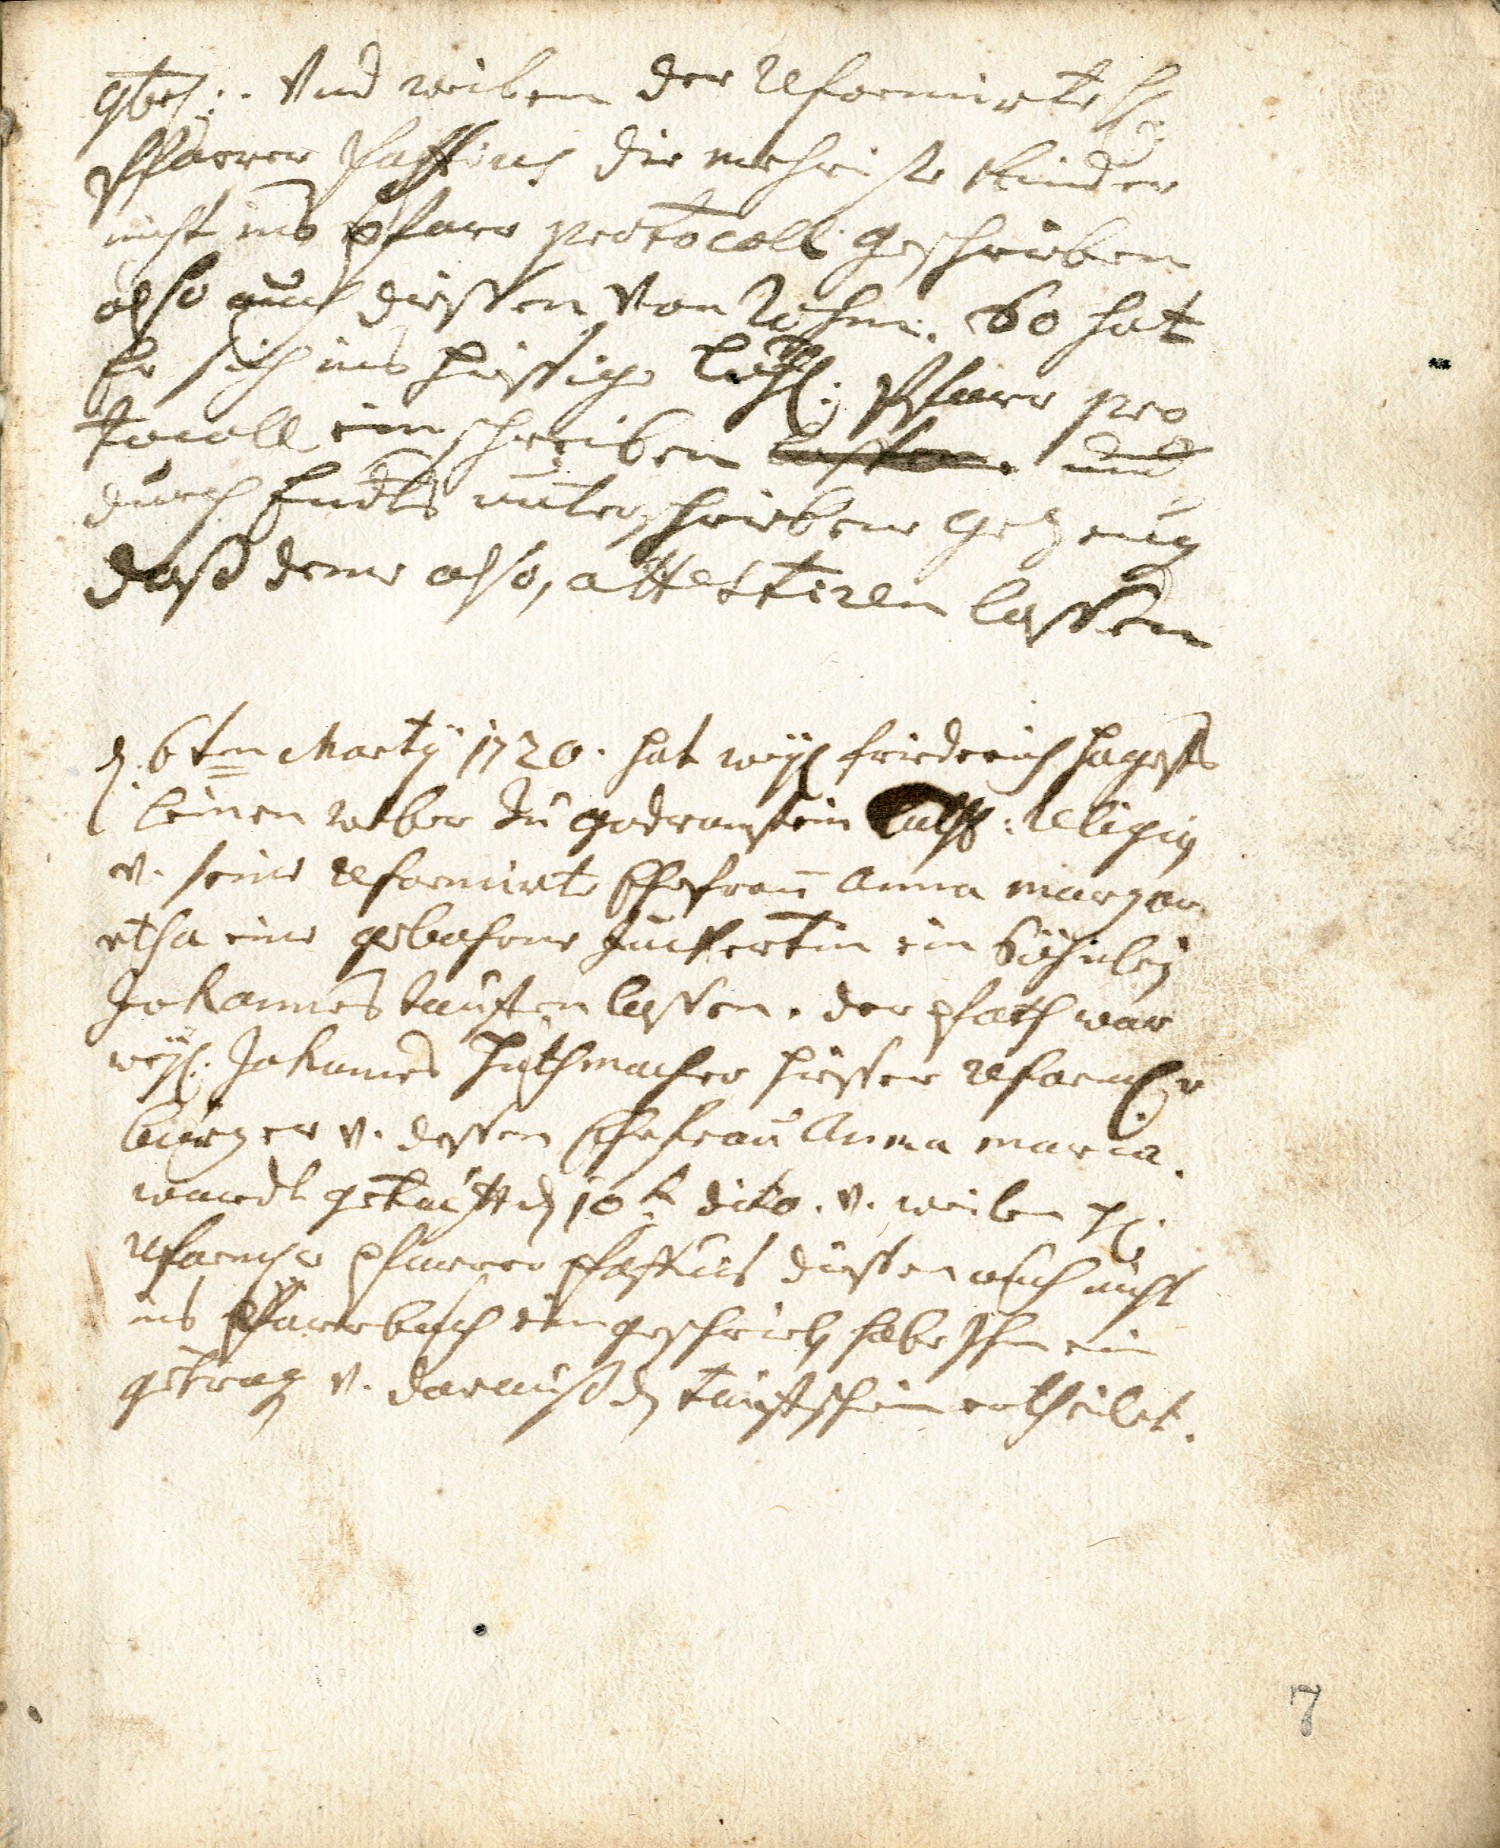 Und weilen der Reformirte H:
Pfarrer Pfaffius die mehriste Kinder
nicht ins Pfarr protocoll geschrieben
also auch diessen von Ihm. So hat
Er sich ins hiessige luth: Pfarr pro
tocoll ein schreiben lassen und
durch Endts unterschriebene gezeug
daß deme also, attestiren lassen
d. 6tm Marty 1720. hat weyl friederich
leinen weber zu godramstein luth: Religion
v. seine Reformirte Ehefrau Anna margar
etha eine gebohrne ein Söhnlein
Johannes tauffen lassen. der pfath war
weyl. Johannes Huthmacher hiesser Reform:r
burger v. dessen Ehefrau Anna maria.
wardt getaufft d. 10t dito. v. weilen H:
Reformr pfarrer pfaffius diessen auch nicht
ins Pfarrbuch eingeschrieben habe Ihn ein
getragen v. darauß den tauffschein ertheilet.
7